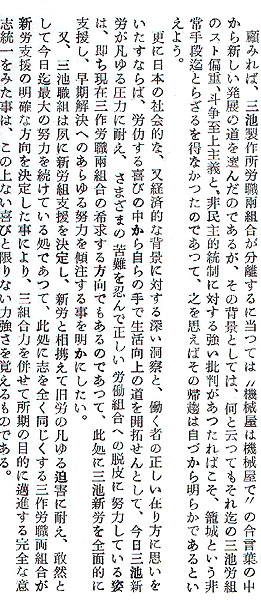 顧みれば、三池製作所労職両組合が分離するに当つては〃機械屋は機械屋で〃の合言葉の中
から新しい発展の道を選んだのであるが、その背景としては、何と云つてもそれ迄の三池労組
のスト偏重、斗争至上主義と、非民主的統制に対する強い批判があつたればこそ、籠城という非
常手段迄とらざるを得なかつたのであつて、之を思えばその帰趨は自づから明らかであるとい
えよう。
更に日本の社会的な、又経済的な背景に対する深い洞察と、働く者の正しい在り方に思いを
いたすならば、労伪する喜びの中から自らの手で生活向上の道を開拓せんとして、今日三池新
労が凡ゆる圧力に耐え、さまざまの苦難を忍んで正しい労働組合への脱皮に努力している姿
は、即ち現在三作労職両組合の希求する方向でもあるのであつて、此処に三池新労を全面的に
支援し、早期解決へのあらゆる努力を傾注する事を明かにしたい。
又、三池職組は夙に新労組支援を決定し、新労と相携えて旧労の凡ゆる迫害に耐え、敢然と
して今日迄最大の努力を続けている処であつて、此処に志を全く同じくする三作労職両組合が
新労支援の明確な方向を決定した事により、三組合力を併せて所期の目的に邁進する完全な意
志統一をみた事は、この上ない喜びと限りない力強さを覚えるものである。